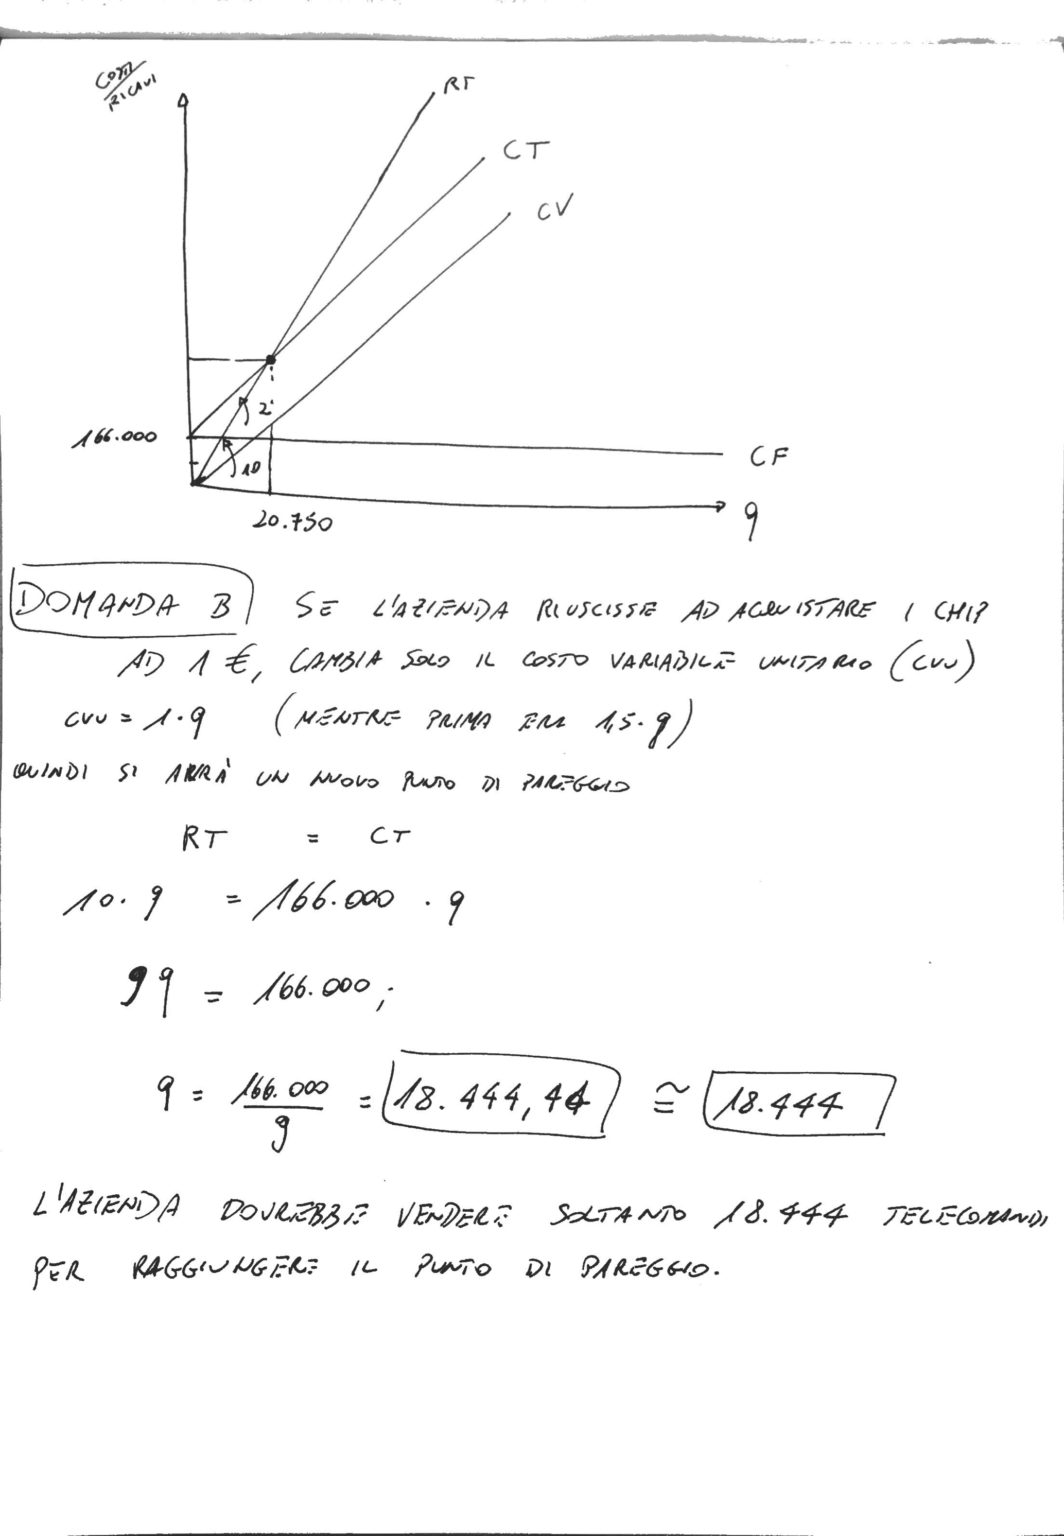 COSTI/
RICAVI
RT
CT
CV
2
166.000
10
CF
20.750
q
DOMANDA B SE L'AZIENDA RIUSCISSE AD ACQUISTARE I CHIP
AD 1 €, CAMBIA SOLO IL COSTO VARIABILE UNITARIO (CVU)
CVU = 1·q (MENTRE PRIMA ERA 1,5·q)
QUINDI SI AVRÀ UN NUOVO PUNTO DI PAREGGIO
RT = CT
10·q = 166.000 · q
9q = 166.000;
q = 166.000 / 9 = 18.444,44 ≅ 18.444
L'AZIENDA DOVREBBE VENDERE SOLTANTO 18.444 TELECOMANDI
PER RAGGIUNGERE IL PUNTO DI PAREGGIO.